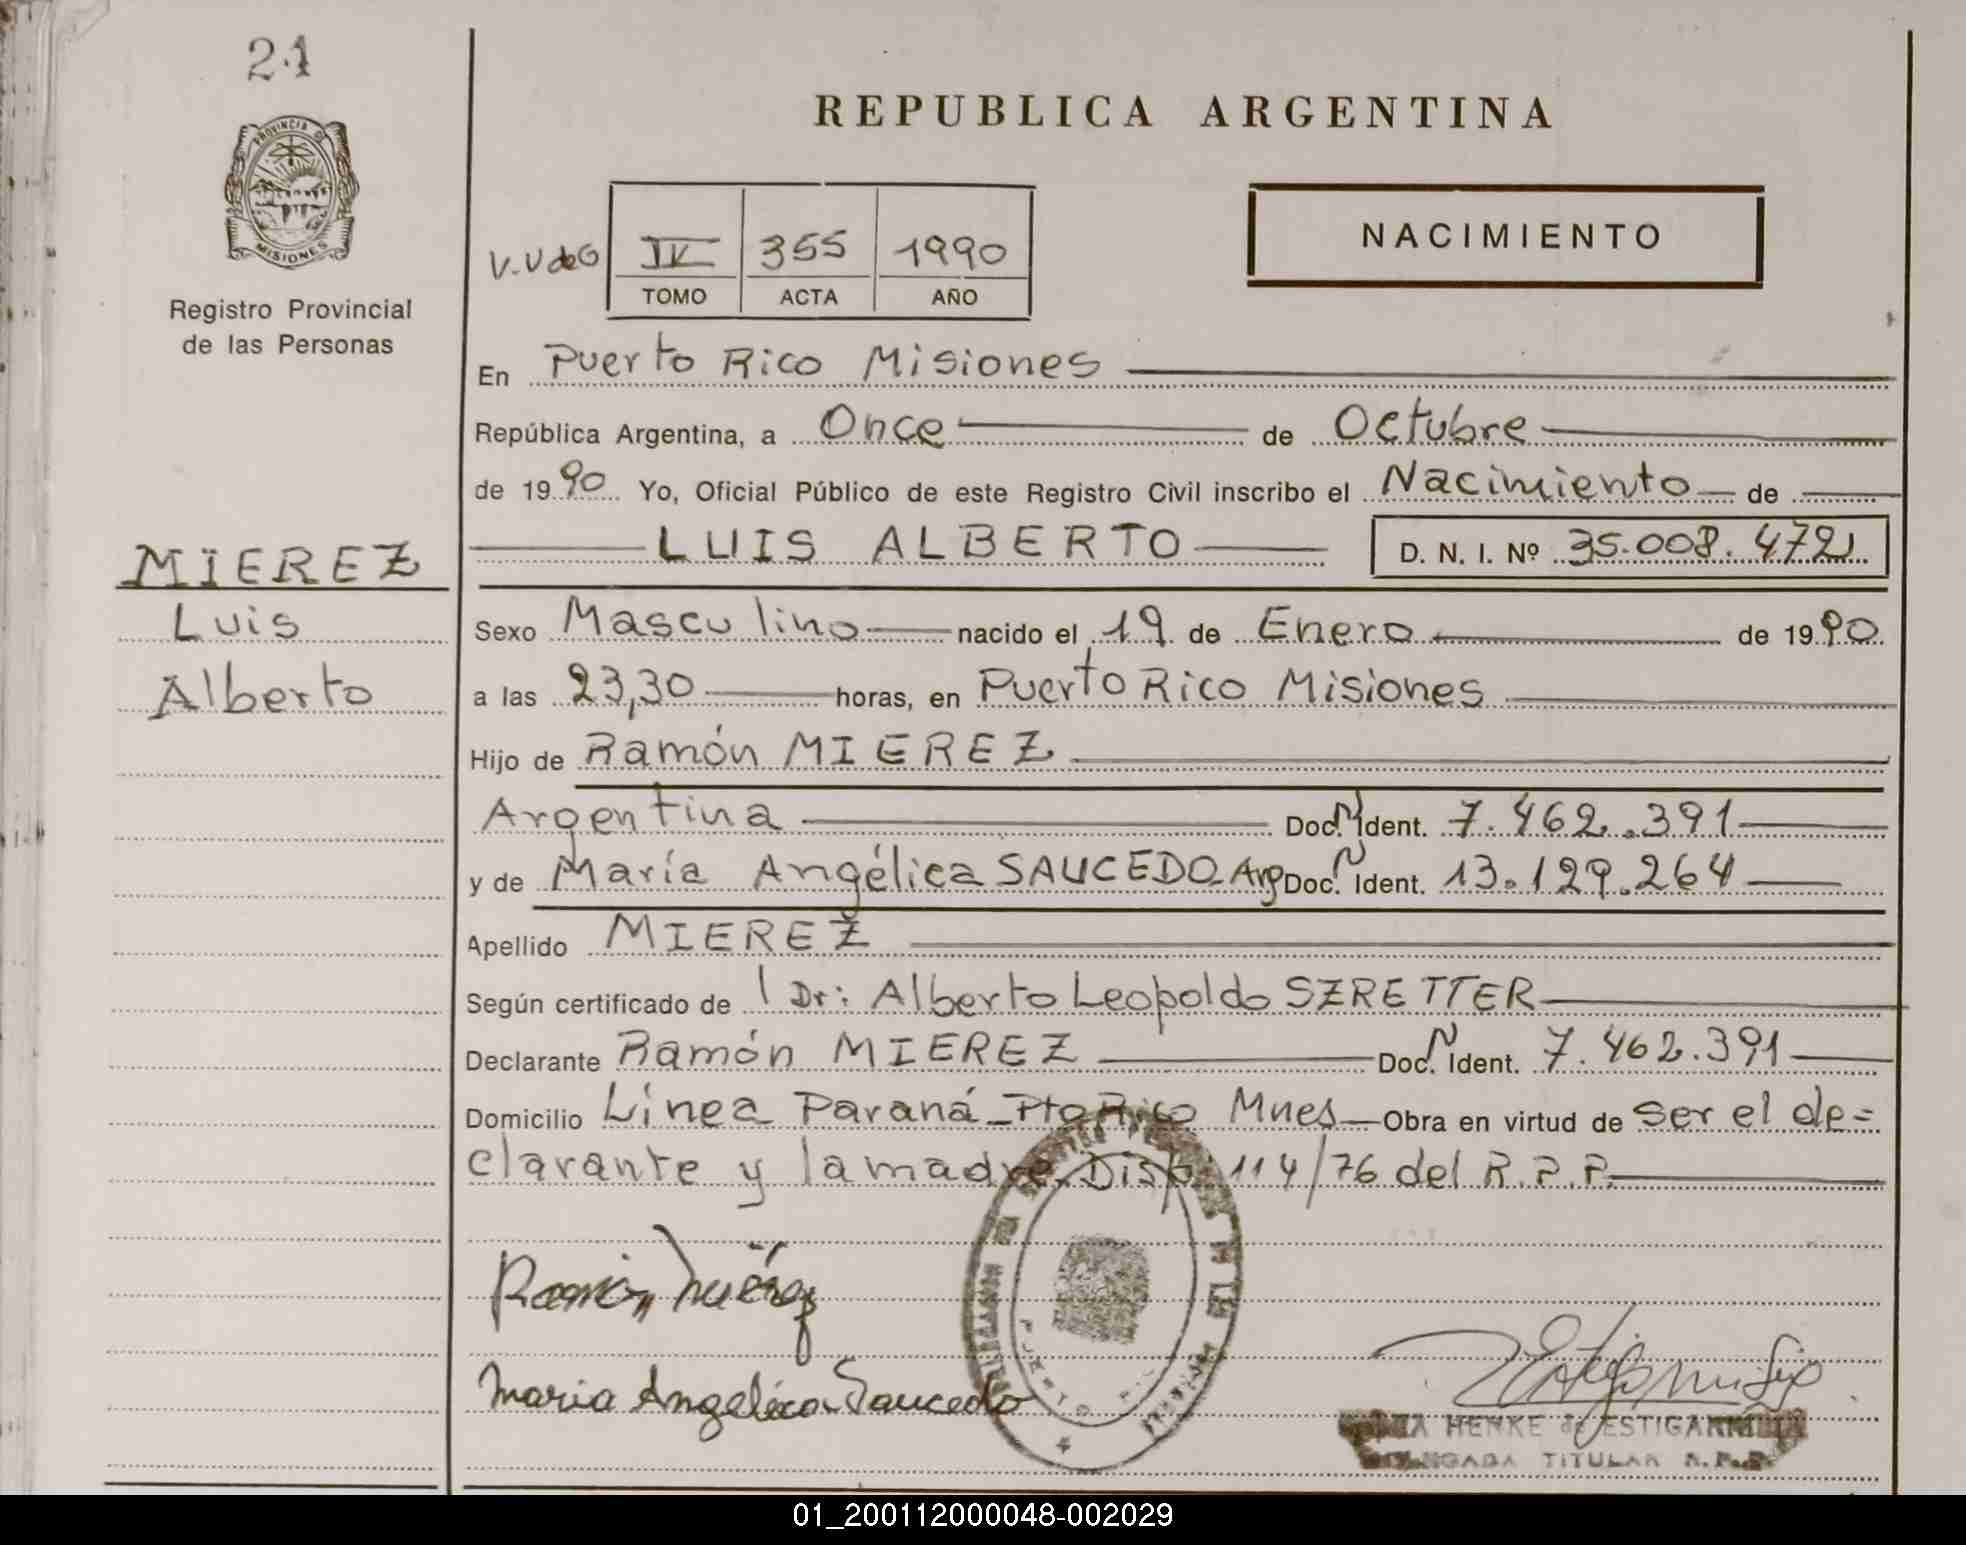 21
PROVINCIA D
MISIONES
Registro Provincial
de las Personas
MIEREZ
Luis
Alberto
REPUBLICA ARGENTINA
V.V de G IV 355 1990
TOMO ACTA AÑO
NACIMIENTO
En Puerto Rico Misiones
República Argentina, a Once de Octubre
de 1990 Yo, Oficial Público de este Registro Civil inscribo el Nacimiento de
LUIS ALBERTO D. N. I. Nº 35.008.472
Sexo Masculino nacido el 19 de Enero de 1990
a las 23,30 horas, en Puerto Rico Misiones
Hijo de Ramón MIEREZ
Argentina Doc. N Ident. 7.462.391
y de María Angélica SAUCEDO Arg Doc. N Ident. 13.129.264
Apellido MIEREZ
Según certificado de l Dr: Alberto Leopoldo SZRETTER
Declarante Ramón MIEREZ Doc. N Ident. 7.462.391
Domicilio Línea Paraná - Pto Rico Mnes - Obra en virtud de ser el de=
clarante y la madre. Disp. 114/76 del R.P.P.
Ramón Mierez
Maria Angelica Saucedo
HENKE de ESTIGARRIBIA
TITULAR R.P.P.
01_200112000048-002029